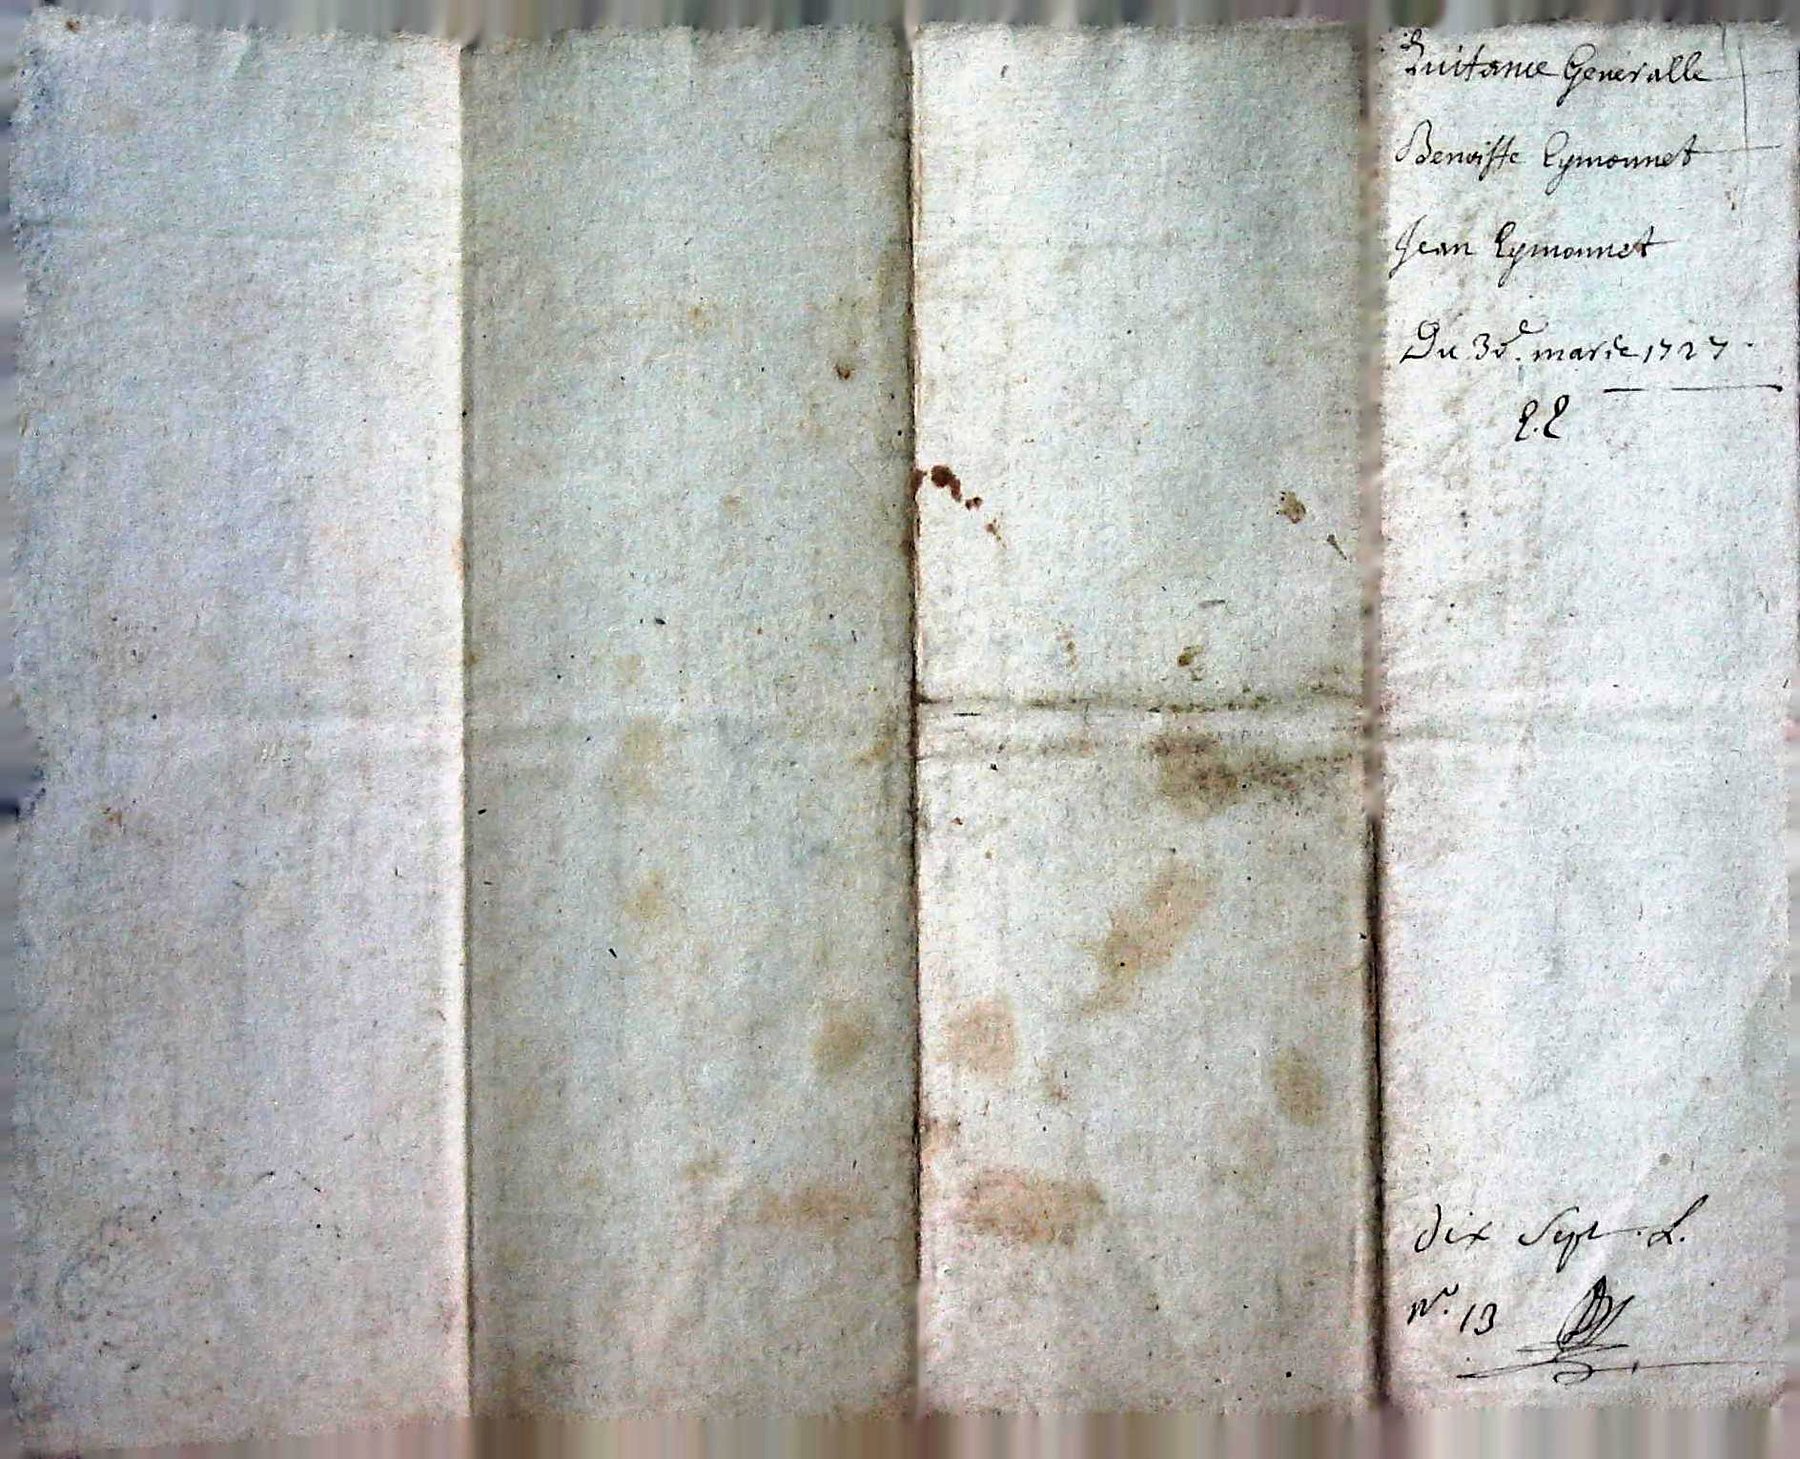 Quitance Generalle
Benoiste Eymonnet
Jean Eymonnet
Du 3e. mars 1727
E.E
dix Sept. L.
No. 13